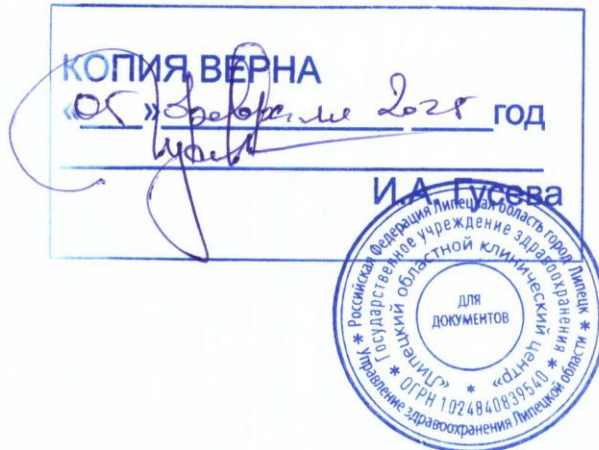 КОПИЯ ВЕРНА
«05» февраля 2025 год
И.А. Гусева
* Российская Федерация Липецкая область город Липецк *
Управление здравоохранения Липецкой области
Государственное учреждение здравоохранения
* ОГРН 1024840839540 *
«Липецкий областной клинический центр» *
ДЛЯ
ДОКУМЕНТОВ